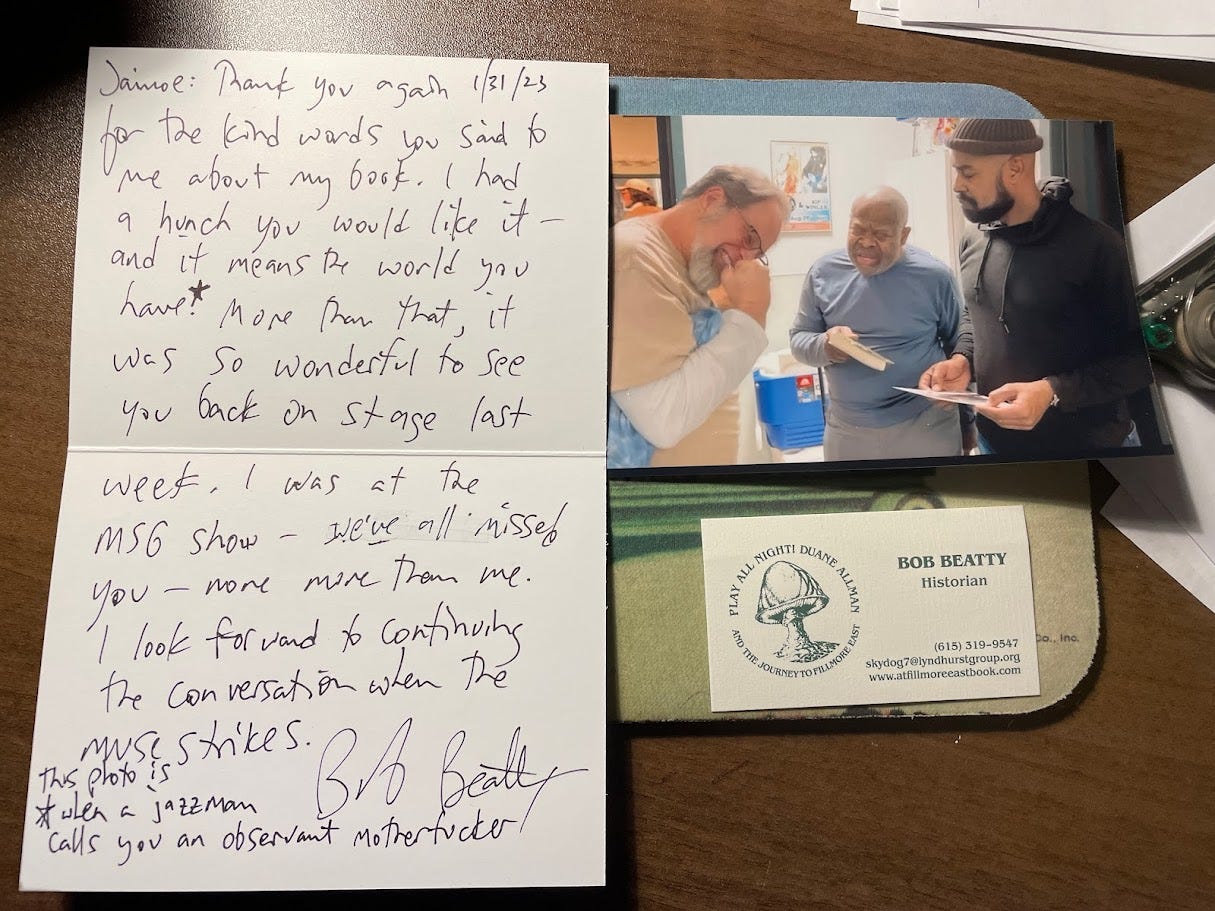 Jaimoe: Thank you again 1/31/23
for the kind words you said to
me about my book. I had
a hunch you would like it –
and it means the world you
have!* More than that, it
was so wonderful to see
you back on stage last
week. I was at the
MSG show – we've all missed
you – none more than me.
I look forward to continuing
the conversation when the
muse strikes.
Bob Beatty
this photo is
*when a jazzman
calls you an observant motherfucker
PLAY ALL NIGHT! DUANE ALLMAN
AND THE JOURNEY TO FILLMORE EAST
BOB BEATTY
Historian
(615) 319-9547
skydog7@lyndhurstgroup.org
www.atfillmoreeastbook.com
Co., Inc.